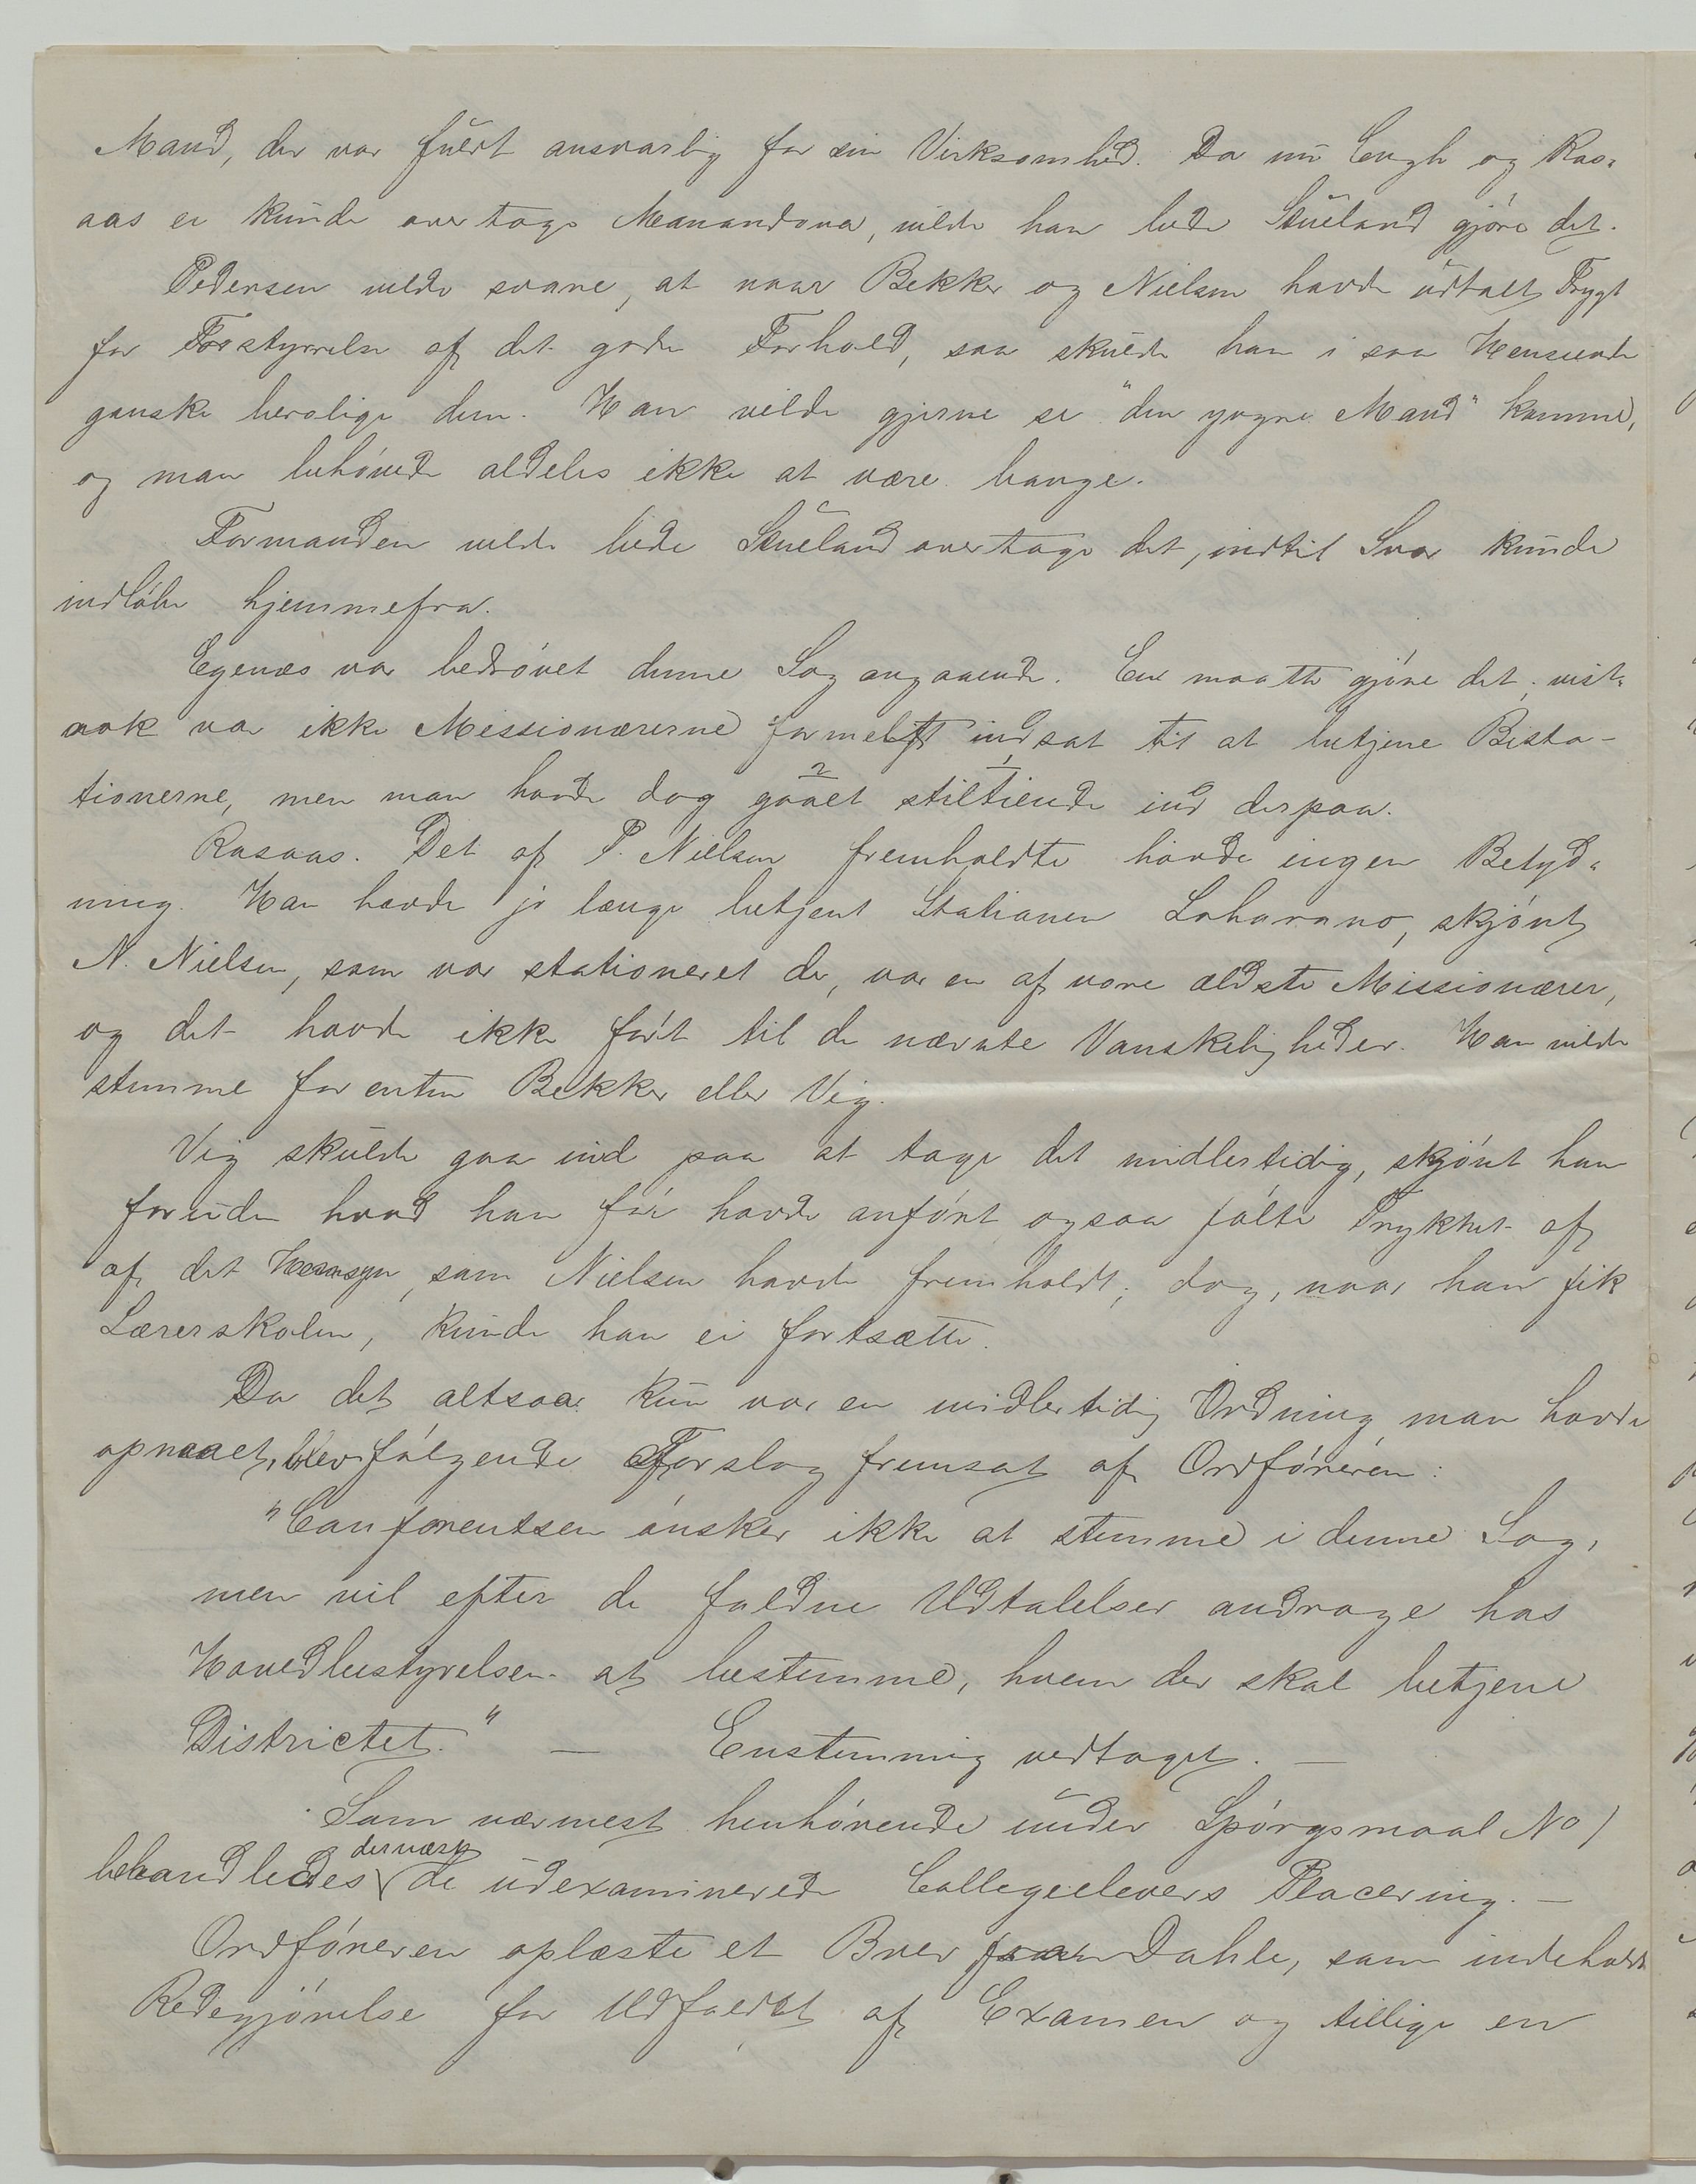 Mand, der var fuldt ansvarlig for sin Virksomhed. Da nu Engh og Ras-
aas ei kunde overtage Manandona, vilde han bede Stueland gjøre det.
Pedersen vilde svare, at naar Bekker og Nielsen havde udtalt Frygt
for Forstyrrelse af det gode Forhold, saa skulde han i saa Henseende
ganske berolige dem. Han vilde gjerne se "den yngre Mand" komme,
og man behøvede aldeles ikke at være bange.
Formanden vilde bede Stueland overtage det, indtil Svar kunde
indløbe hjemmefra.
Egenæs var bedrøvet denne Sag angaaende. En maatte gjøre det; vist-
nok var ikke Missionærerne formelt indsat til at betjene Bista-
tionerne, men man havde dog gaaet stiltiende ind derpaa.
Rasaas. Det af P. Nielsen fremholdte havde ingen Betyd-
ning. Han havde jo længe betjent Stationen Loharano, skjønt
N. Nielsen, som var stationeret der, var en af vore ældste Missionærer,
og det havde ikke ført til de nævnte Vanskeligheder. Han vilde
stemme for enten Bekker eller Vig.
Vig skulde gaa ind paa at tage det midlertidig, skjønt han
foruden hvad han før havde anført, ogsaa følte Trykket af
af det Hensyn, som Nielsen havde fremholdt; dog, naar han fik
Lærerskolen, kunde han ei fortsætte.
Da det altsaa kun var en midlertidig Ordning man havde
opnaaet, blev følgende Forslag fremsat af Ordføreren:
"Conferentsen ønsker ikke at stemme i denne Sag,
men vil efter de faldne Udtalelser andrage hos
Hovedbestyrelsen at bestemme, hvem der skal betjene
Districtet." — Enstemmig vedtaget. —
Som nærmest henhørende under Spørgsmaal No 1
behandledes dernæst de udexaminerede Collegeelevers Placering. —
Ordføreren oplæste et Brev fra Dahle, som indeholdt
Redegjørelse for Udfaldet af Examen og tillige en